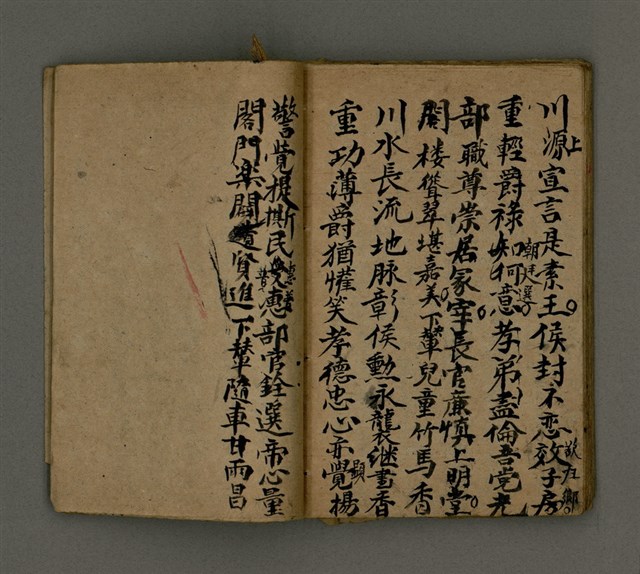 川源宣言是素王侯封不恋效子房
上
重輕爵祿如何意孝弟盡倫吾党光
朝廷選
部職尊崇居冢宰長官廉慎上明堂
閣楼聳翠堪嘉美下輦兒童竹馬香
川水長流地脉彰侯勳永襲継書香
重功薄爵猶懽笑孝德忠心亦覺揚
顯
警覺提撕民愚部官銓選帝心量
閣門樂闢賢進下輦隨車甘雨昌